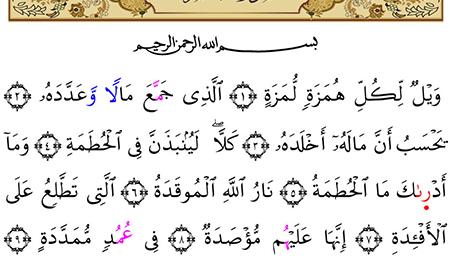 بسم الله الرحمن الرحيم
وَيْلٌ لِّكُلِّ هُمَزَةٍ لُّمَزَةٍ ﴿١﴾ ٱلَّذِى جَمَّعَ مَالًا وَّعَدَّدَهُۥ ﴿٢﴾
يَحْسَبُ أَنَّ مَالَهُۥٓ أَخْلَدَهُۥ ﴿٣﴾ كَلَّاۖ لَيُنۢبَذَنَّ فِى ٱلْحُطَمَةِ ﴿٤﴾ وَمَآ
أَدْرَىٰكَ مَا ٱلْحُطَمَةُ ﴿٥﴾ نَارُ ٱللَّهِ ٱلْمُوقَدَةُ ﴿٦﴾ ٱلَّتِى تَطَّلِعُ عَلَى
ٱلْأَفْـِٔدَةِ ﴿٧﴾ إِنَّهَا عَلَيْهِم مُّؤْصَدَةٌ ﴿٨﴾ فِى عُمُدٍ مُّمَدَّدَةٍ ﴿٩﴾